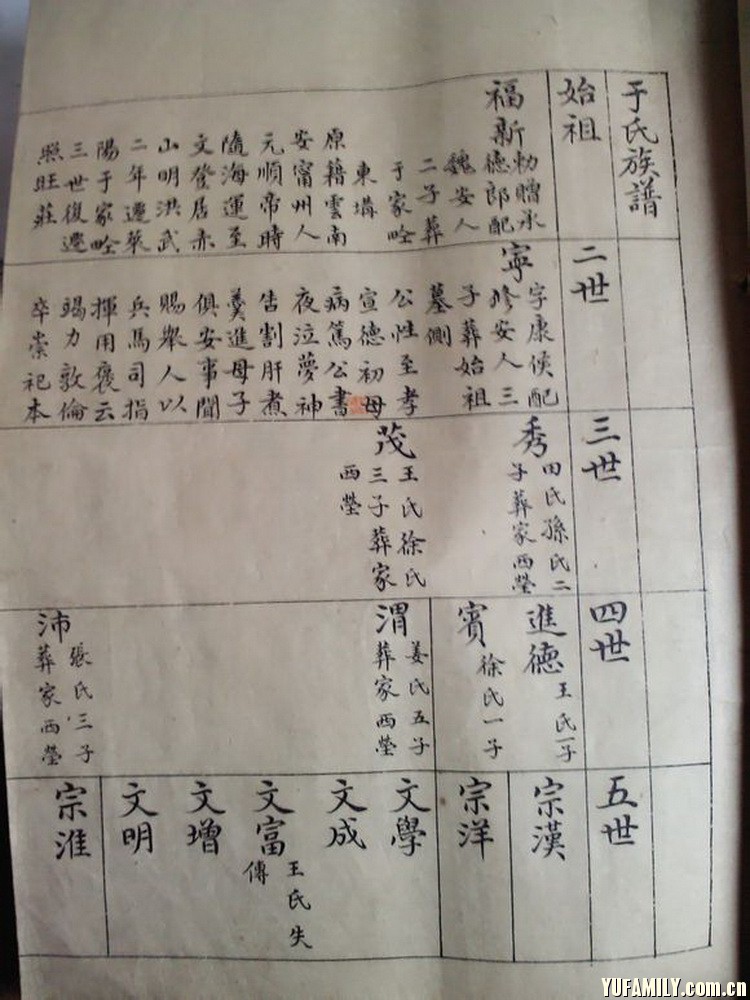 于氏族譜
始祖
福新
勑贈承
德郎配
魏安人
二子葬
于家
東溝
原籍雲南
安甯州人
元順帝時
隨海運至
文登居赤
山明洪武
二年遷萊
陽于家
三世復遷
照旺莊
二世
寧
字康侯配
修安人三
子葬始祖
墓側
公性至孝
宣德初母
病篤公書
夜泣夢神
告割肝煮
羹進母子
俱安事聞
賜舉人以
兵馬司指
揮用褒云
竭力敦倫
卒崇祀本
三世
秀
田氏孫氏二
子葬家西塋
茂
王氏徐氏
三子葬家
西塋
四世
進德
王氏一子
賓
徐氏一子
渭
姜氏五子
葬家西塋
沛
張氏三子
葬家西塋
五世
宗漢
宗洋
文學
文成
文富
王氏失
傳
文增
文明
宗淮
YUFAMILY.com.cn